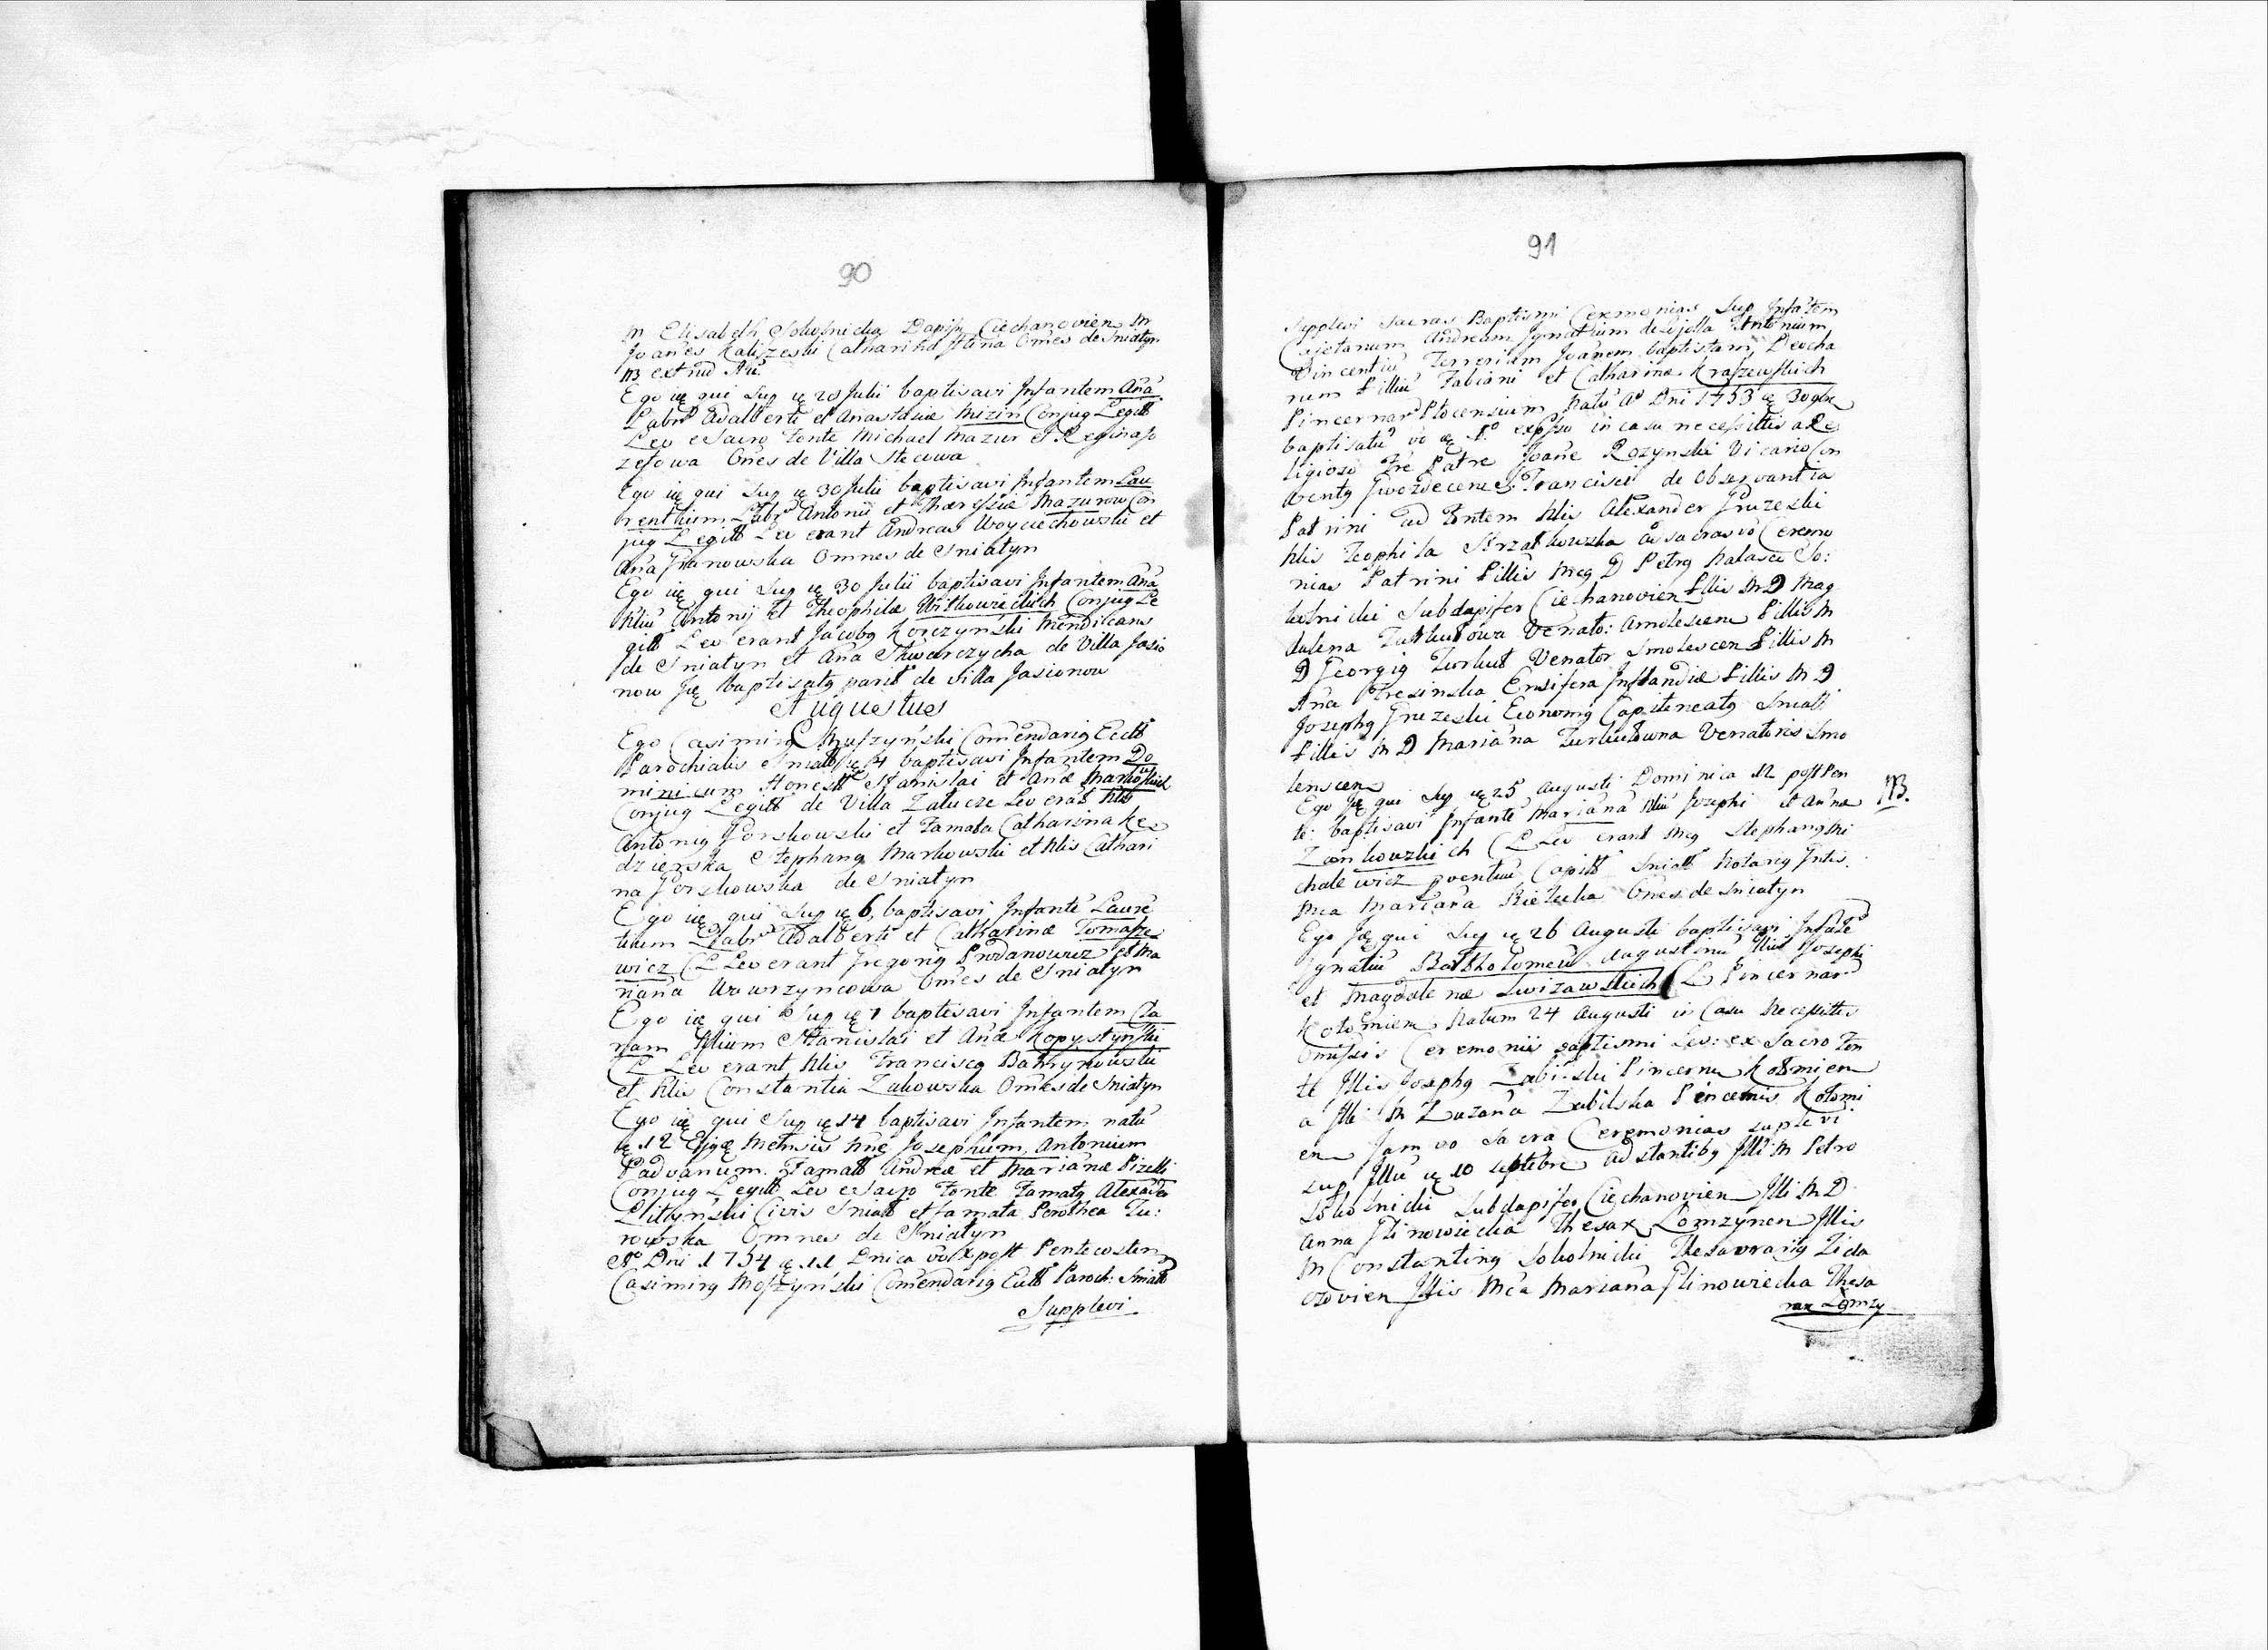 90
M Elisabeth Sokolnicka Dapif Ciechanovien M
Joañes Kaliszeski Catharina Ilina Omẽs de Sniatyn
NB ext
Ego ię qui Sup ię 20 Julii baptisavi Infantem Aña
Labr Adalberti et Anastasiæ Mizin Conjug Legitt
Lev e Sacro Fonte Michael Mazur et Regina Jo
zefowa Oñes de Villa Stecowa
Ego ię qui Sup ię 30 Julii baptisavi Infantem Lau
rentium Labr Antonii et Theressiæ Mazurow Con
jug Legitt Lev erant Andreas Woyciechowski et
Aña Janowska Omnes de Sniatyn
Ego ię qui Sup ię 30 Julii baptisavi Infantem Aña
filiu Antonij et Theophilæ Witkowickich Conjug Le
gitt Lev erant Jacobg Korczynski Mendicans
de Sniatyn et Aña Tkwarczycha de Villa Jasio
now Ię baptisatg parit de villa Jasionow
Augustus
Ego Casimirg Muszyński Comendarig Eccł
Parochialis Sniatt ię 4 baptisavi Infantem Do
minicum Honest Stanislai et Añæ Markowskich
Conjug Legitt de Villa Zalucze Lev erãt Nb
Antonig Gorskowski et Famata Catharina Ke
dzierska Stephang Markowski et Nlis Cathari
na Gorskowska de Sniatyn
Ego ię qui Sup ię 6 baptisavi Infantẽ Laurẽ
tium Labr Adalberti et Catharinæ Tomasze
wicz CL Lev erant Gregorig Prodanowicz et Ma
riana Wawrzyncowa Omẽs de Sniatyn
Ego ię qui Sup ię 7 baptisavi Infantem Cla
ram Nlium Stanislai et Añæ Kopystynski
CL Lev erant Nlis Franciscg Bakrynowski
et Nlis Constantia Zukowska Omẽs de Sniatyn
Ego ię qui Sup ię 14 baptisavi Infantem natũ
ię 12 Ejgæ Mensis Nñe Josephum, Antonium
Padvanum Famatt Andreæ et Mariañæ Pizelli
Conjug Legitt Lev e Sacro Fonte Famatg Alexader
Plitynski Civis Sniatt et Famata Dorothea Tu:
rowska Omnes de Sniatyn
Aº Dñi 1754 ię 11 Dnica vo X post Pentecosten
Casimirg Moszyński Comendarig Eccł Paroch: Sniatt
Supplevi
91
Supplevi Sacras Baptismi Ceremonias Sup Infãtem
Cajetanum Andream Ignatium de Lojolla Antonium
Vincentiu Ferreriam Joãnem baptistam, Leocha
rum Filliũ Fabiani et Catharinæ Kraszewskich
Pincernar Plocensium Natũ Aº Dni 1753 ię 30
baptisatũ vo ię expsso in casu necessittis a Re
ligioso Fre Patre Joañe Rozynski Vicario Con
ventg Gwozdecens S: Francisci de Observantia
Patrini ad Fontem Nlis Alexander Gruzeski
Nlis Teophila Strzałkowska ad sacras vo Ceremo
nias Patrini Illis Mcg D Petrg Halasce So:
kolnicki Subdapifer Ciechanovien Illis M D Mag
dalena Turkułowa Venato: Smolescen Illis M
D Georgig Turkuł Venator Smolescen Illis M
Aña Tresinska Ensifera Inflandiæ Illis M D
Josephg Gruzeski Economg Capiteneatg Sniatt
Illis M D Mariana Turkułowna Venatoris Smo
lenscen
Ego Ię qui Sup ię 25 Augusti Dominica 12 post Pen
te: baptisavi Infantẽ Mariãna Nliũ Josephi et Añnæ
Zankowzkich CL Lev erant Mcg Stephang Mi
chalewicz Capitt Sniatt Notarig Jnlis.
Mca Mariana Omẽs de Sniatyn
NB.
Ego Ię qui Sup ię 26 Augusti baptisavi Infãtẽ
Ignatiũ Bartholomeũ Augustinũ Illiũ Josephi
et Magdalenæ Swizawskich CL Pincernar
Kołomien Natum 24 Augusti in Casu Necessittis
Omissis Ceremoniis baptismi Lev: ex Sacro Fon
te Illis Josephg Pincerna Kołomien
a Illi M Zuzãna Zabilska Pincernis Kołomi
en Jam vo Sacra Ceremonias suplevi
sup Illũ ię 10 Septẽbre adstantibg Illi M Petro
Sokolnicki Subdapifer Ciechanovien Illi M D
Anna Glinowiecka Thesar Lomzynen Illis
M Constanting Sokolnicki Thesaurarig Zida
czovien Illis Mca Mariãna Glinowiecka Thesa
rar Lomzy